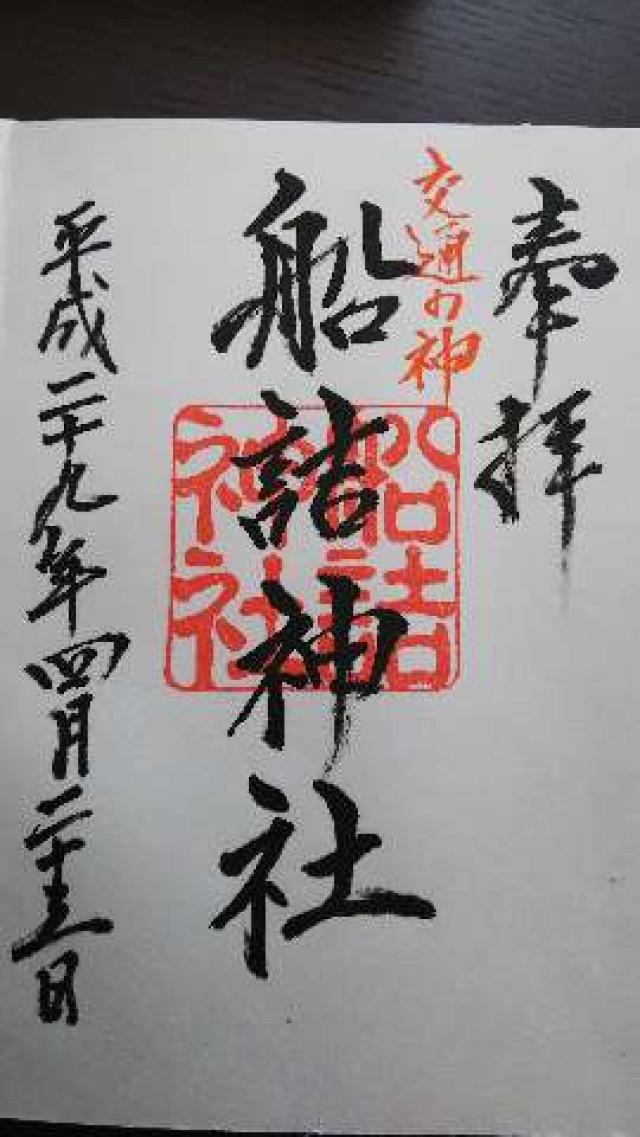 奉拝
交通の神
船詰神社
船詰神社
平成二十九年四月二十三日